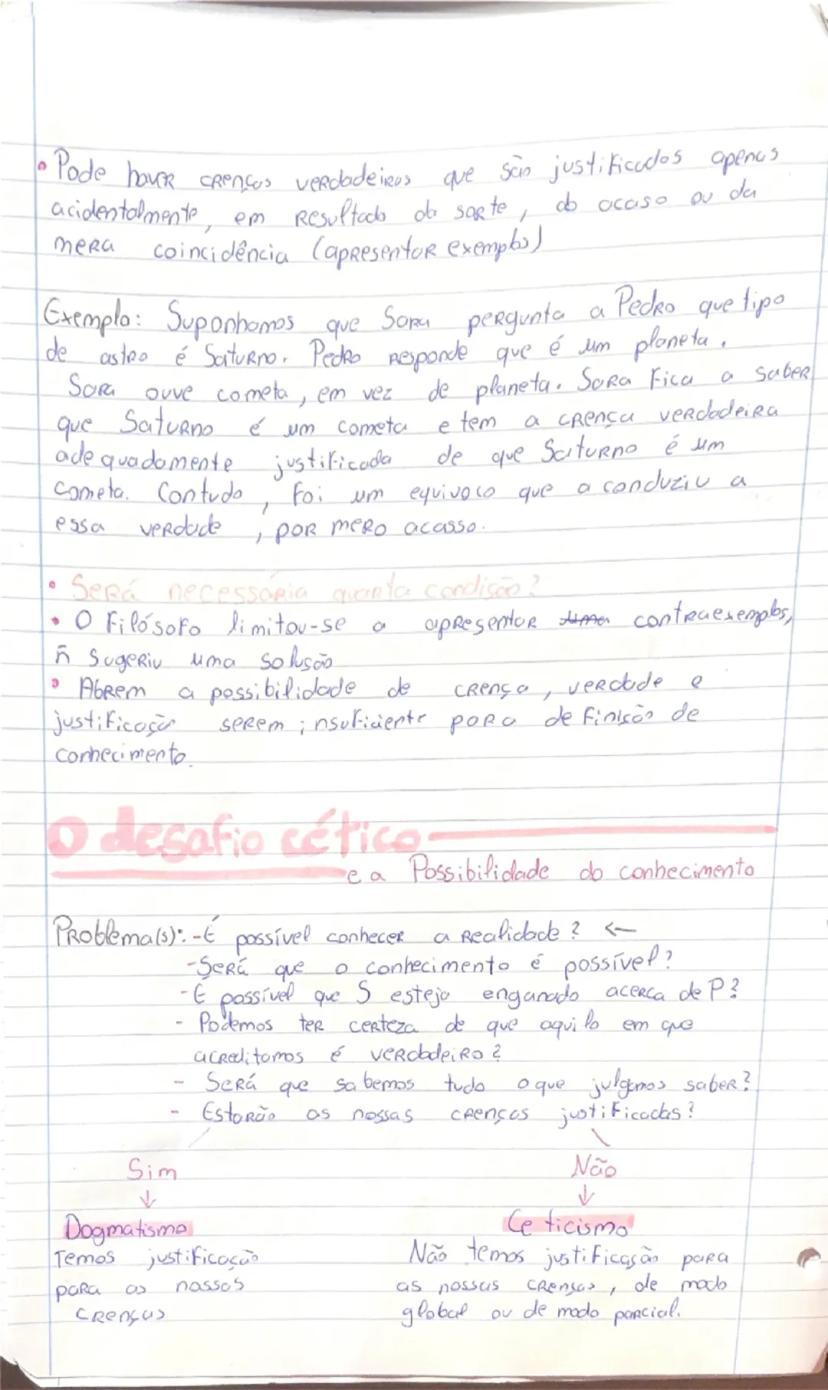 • Pode haver crenças verdadeiras que são justificadas apenas
acidentalmente, em resultado da sorte, do acaso ou da
mera coincidência (apresentar exemplos)
Exemplo: Suponhamos que Sara pergunta a Pedro que tipo
de astro é Saturno. Pedro responde que é um planeta.
Sara ouve cometa, em vez de planeta. Sara fica a saber
que Saturno é um cometa e tem a crença verdadeira
adequadamente justificada de que Saturno é um
cometa. Contudo, foi um equivoco que a conduziu a
essa verdade, por mero acaso.
• Será necessária quarta condição?
• O filósofo limitou-se a apresentar uma contraexemplos,
ñ sugeriu uma solução
• Abrem a possibilidade de crença, verdade e
justificação serem insuficiente para definição de
conhecimento.
O desafio cético
e a Possibilidade do conhecimento
Problema(s): - É possível conhecer a realidade? ←
- Será que o conhecimento é possível?
- É possível que S esteja enganado acerca de P?
- Podemos ter certeza de que aquilo em que
acreditamos é verdadeiro?
- Será que sabemos tudo o que julgamos saber?
- Estarão as nossas crenças justificadas?
Sim Não
↓ ↓
Dogmatismo Ceticismo
Temos justificação Não temos justificação para
para as nossas as nossas crenças, de modo
crenças global ou de modo parcial.